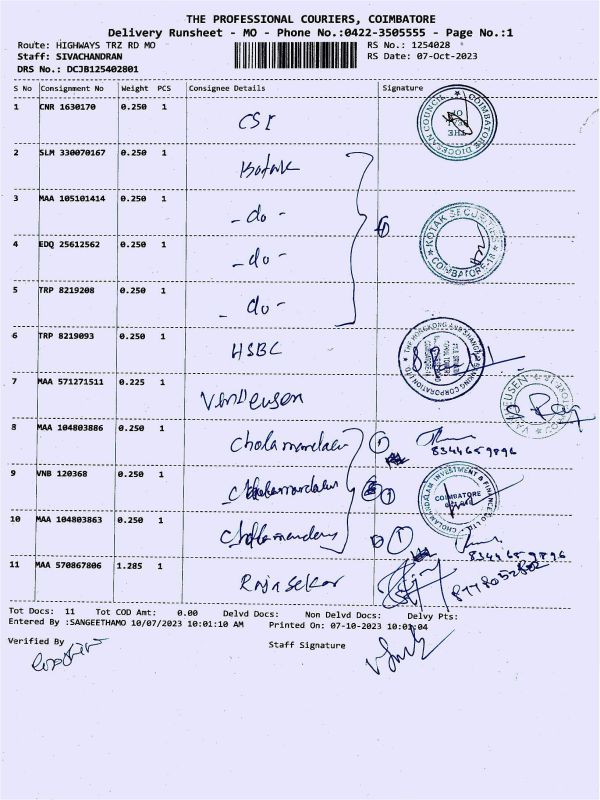 THE PROFESSIONAL COURIERS, COIMBATORE
Delivery Runsheet - MO - Phone No.:0422-3505555 - Page No.:1
Route: HIGHWAYS TRZ RD MO RS No.: 1254028
Staff: SIVACHANDRAN RS Date: 07-Oct-2023
DRS No.: DCJB125402801
S No Consignment No Weight PCS Consignee Details Signature
1 CNR 1630170 0.250 1 CSI
COIMBATORE DIOCESAN COUNCIL
2 SLM 330070167 0.250 1 Kotak
3 MAA 105101414 0.250 1 - do -
4 EDQ 25612562 0.250 1 - do -
KOTAK SECURITIES
COIMBATORE-18
5 TRP 8219208 0.250 1 - do -
6 TRP 8219093 0.250 1 HSBC
THE HONGKONG AND SHANGHAI BANKING CORPORATION LTD
7 MAA 571271511 0.225 1 VanHeusen
VAN HEUSEN
8 MAA 104803886 0.250 1 Cholamandalam 1
8344659896
9 VNB 120368 0.250 1 Cholamandalam 1
CHOLAMANDALAM INVESTMENT & FINANCE CO LTD
COIMBATORE
10 MAA 104803863 0.250 1 Cholamandalam 1
8344659896
11 MAA 570867806 1.285 1 Rajasekar
Tot Docs: 11 Tot COD Amt: 0.00 Delvd Docs: Non Delvd Docs: Delvy Pts:
Entered By :SANGEETHAMO 10/07/2023 10:01:10 AM Printed On: 07-10-2023 10:01:04
Verified By Staff Signature